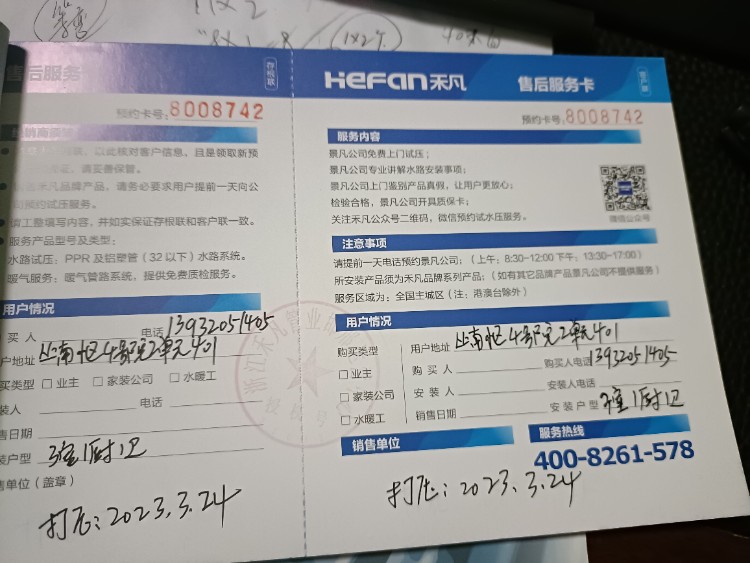 售后服务
存根联
预约卡号:8008742
以此核对客户信息，且是领取新预
请妥善保管。
禾凡品牌产品，请务必要求用户提前一天向公
司预约试压服务。
填工整填写内容，并如实保证存根联和客户联一致。
服务产品型号及类型：
水路试压：PPR及铝塑管（32以下）水路系统。
暖气服务：暖气管路系统，提供免费质检服务。
用户情况
买人
电话 13932051405
户地址
4号院2单元401
买类型 □业主 □家装公司 □水暖工
装人
电话
售日期
装户型
1厨1卫
售单位（盖章）
打压：2023.3.24
HeFan禾凡
售后服务卡
预约卡号:8008742
服务内容
景凡公司免费上门试压；
景凡公司专业讲解水路安装事项；
景凡公司上门鉴别产品真假，让用户更放心；
检验合格，景凡公司开具质保卡；
关注禾凡公众号二维码，微信预约试水压服务。
微信公众号
注意事项
请提前一天电话预约景凡公司；（上午：8:30-12:00 下午：13:30-17:00）
所安装产品须为禾凡品牌系列产品；（如有其它品牌产品景凡公司不提供服务）
服务区域为：全国主城区（注：港澳台除外）
用户情况
购买类型
□业主
□家装公司
□水暖工
用户地址
4号院2单元401
购买人
购买人电话 13932051405
安装人
安装人电话
销售日期
安装户型
1厨1卫
销售单位
服务热线
400-8261-578
打压：2023.3.24